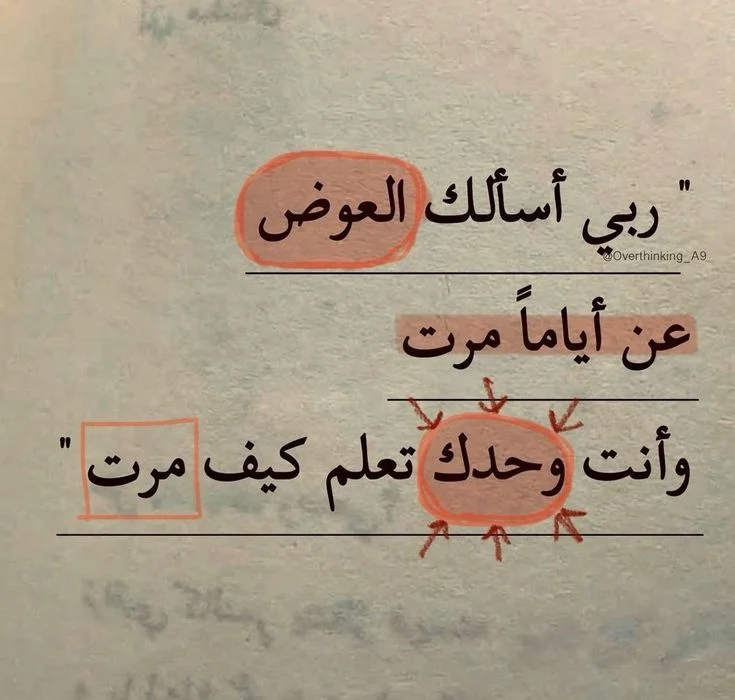 " ربي أسألك العوض
@Overthinking_A9
عن أياماً مرت
وأنت وحدك تعلم كيف مرت "